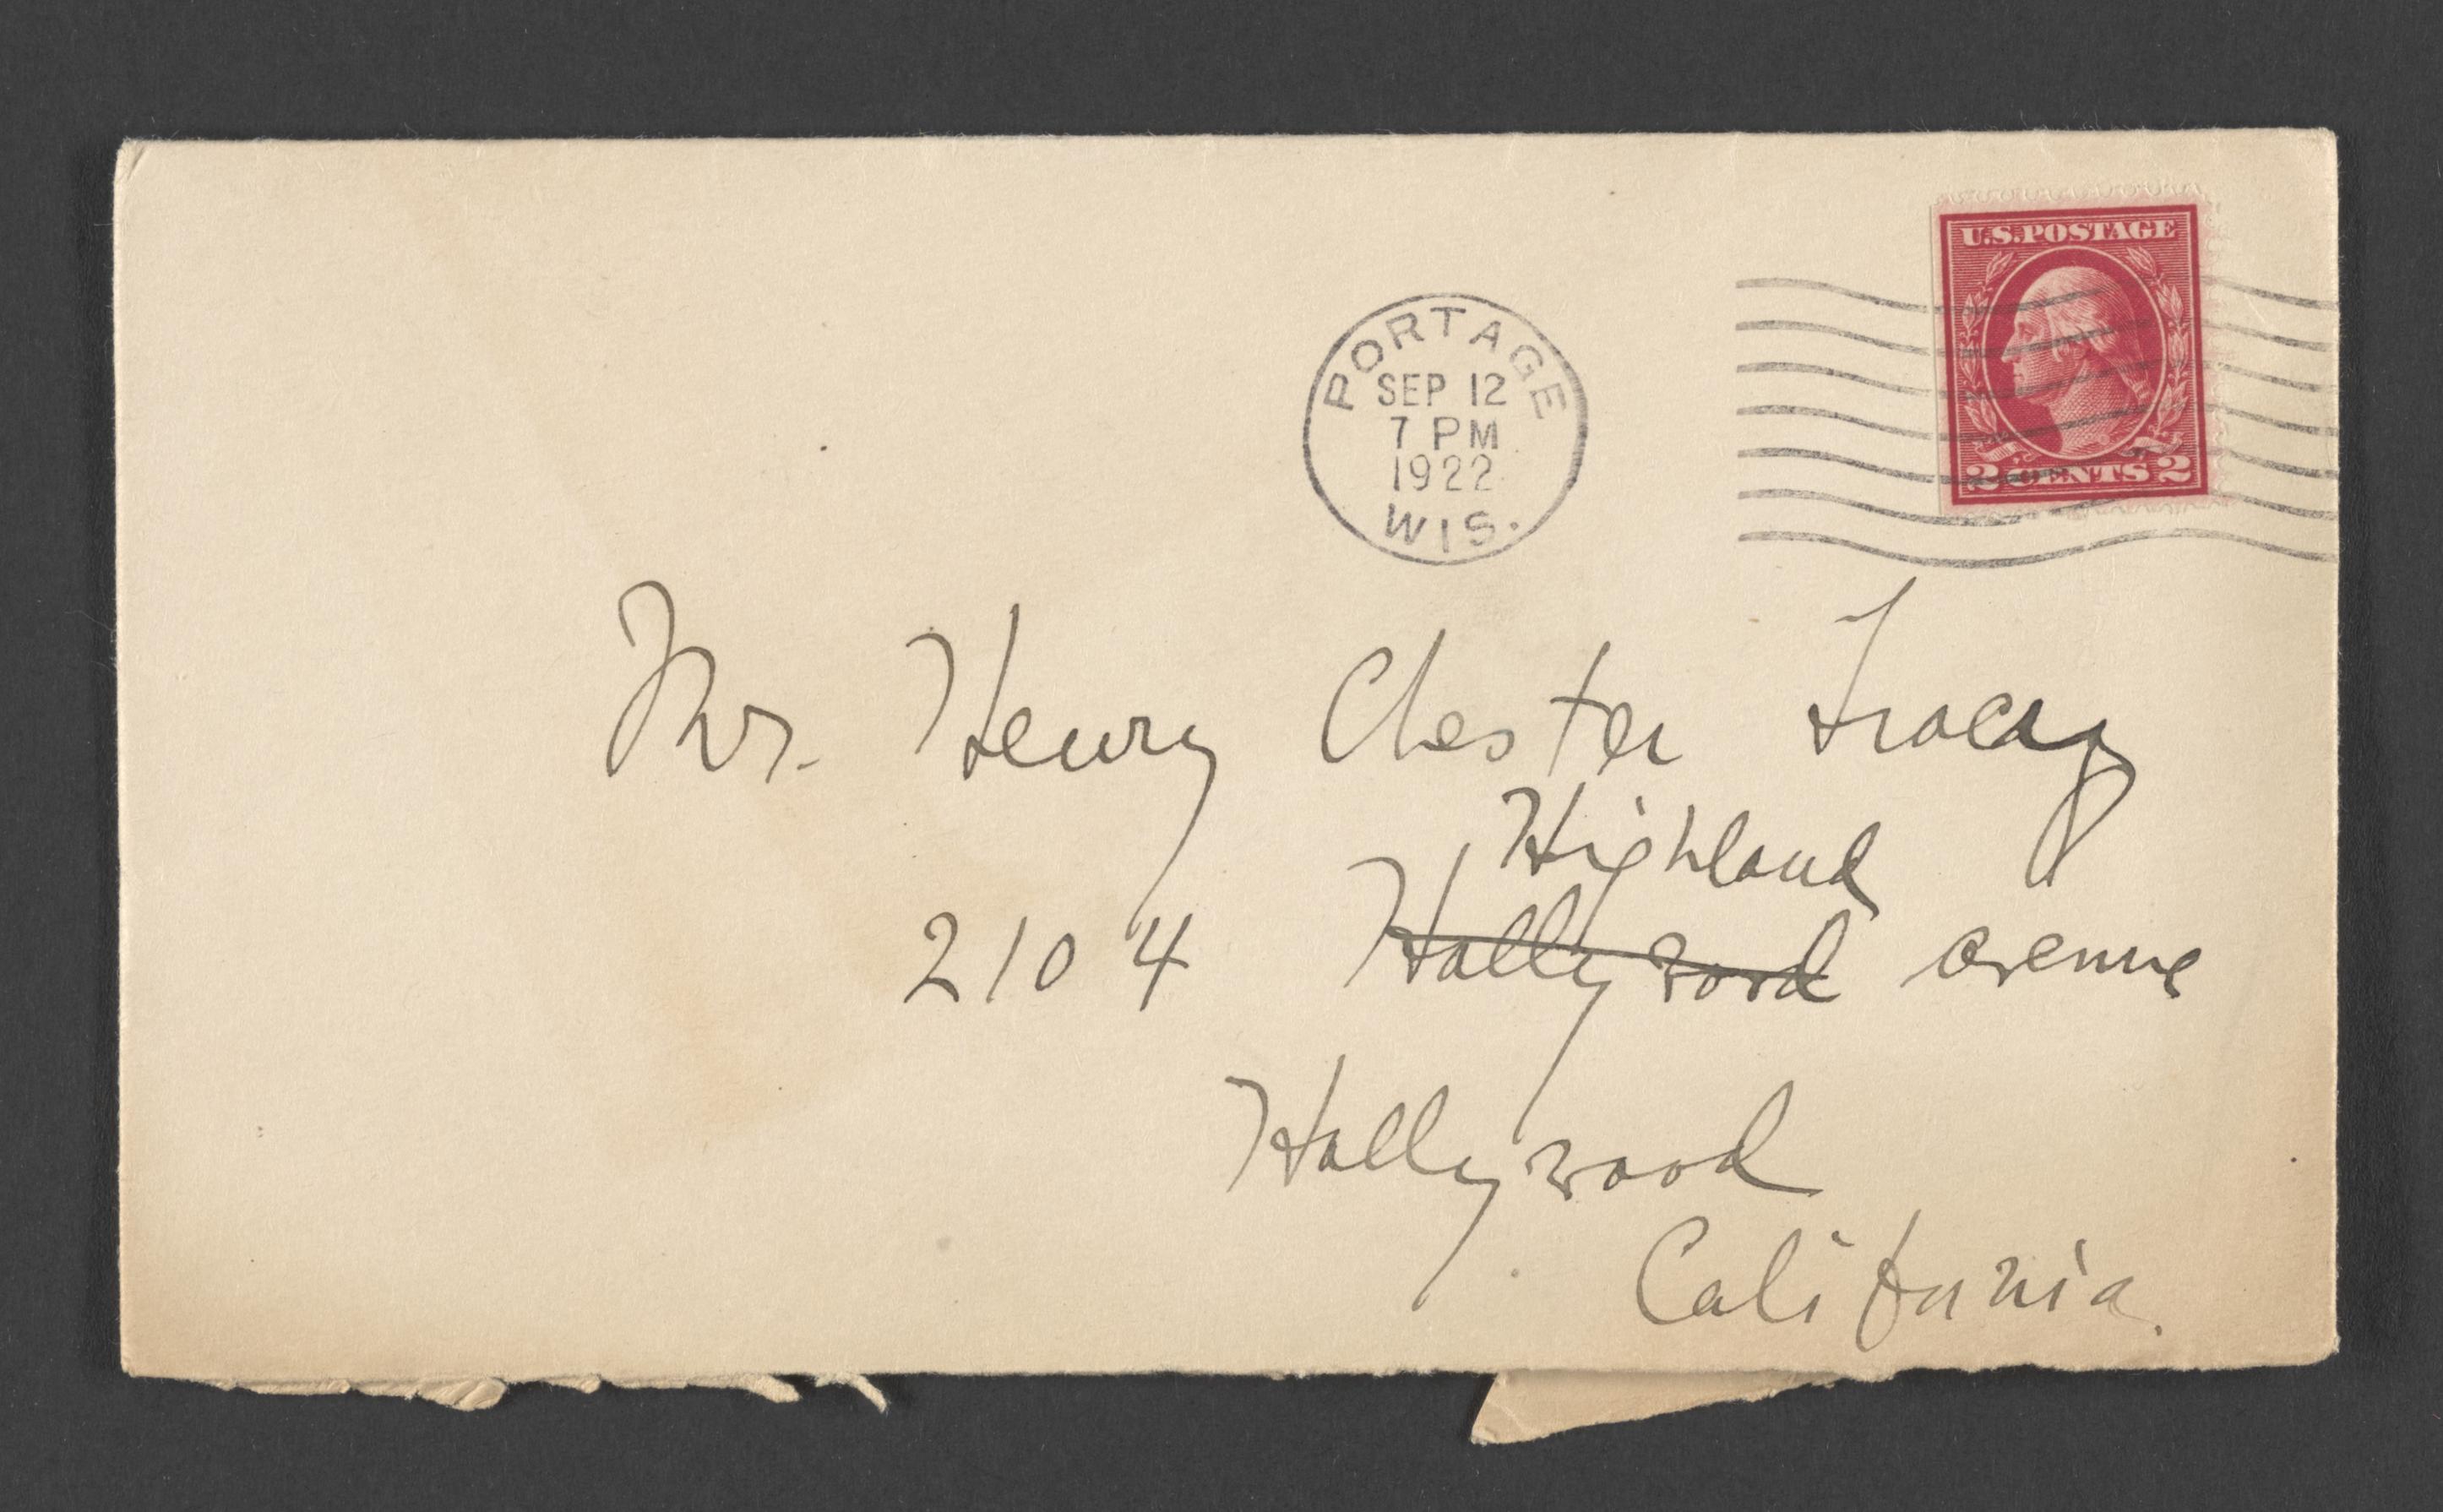 U.S. POSTAGE
2 CENTS 2
PORTAGE
SEP 12
7 PM
1922
WIS.
Mr. Henry Chester Tracy
Highland
2104 Hollywood avenue
Hollywood
California.